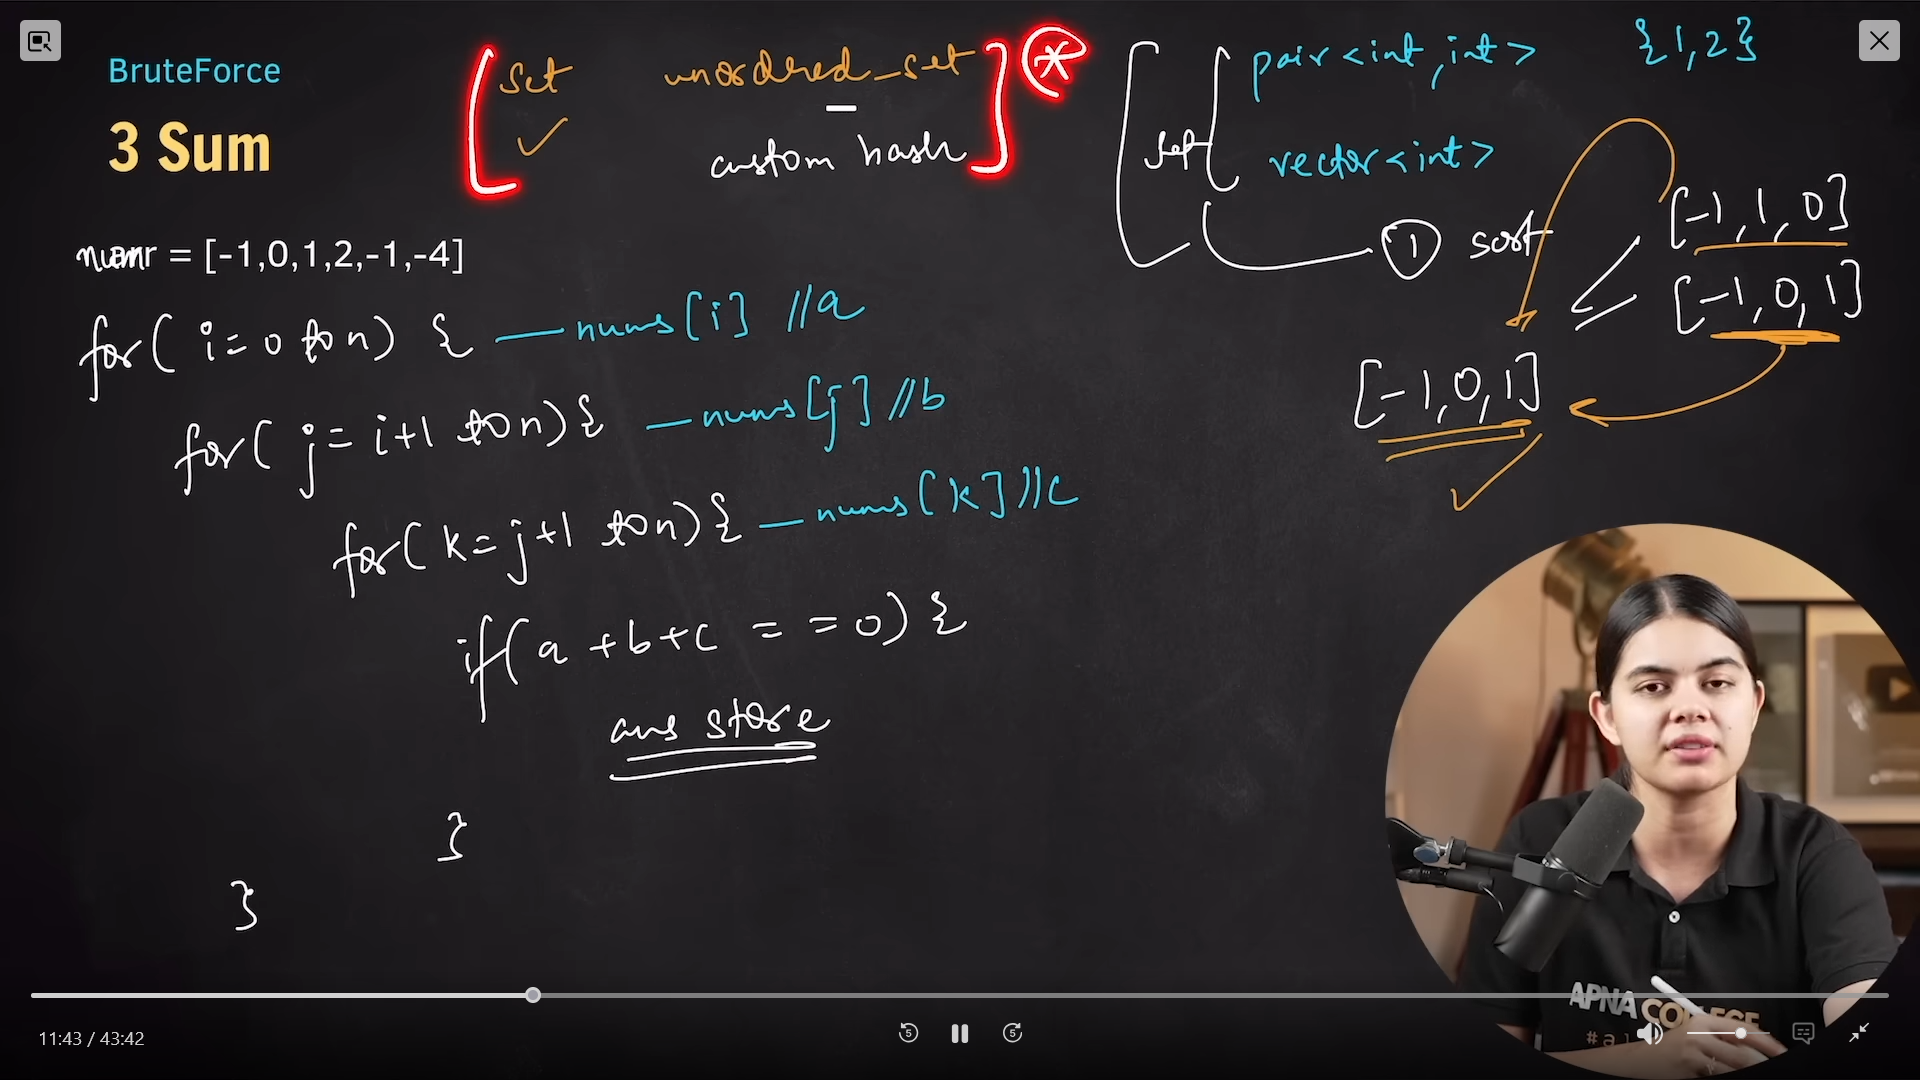 BruteForce
3 Sum
set unordered_set
custom hash
set
pair<int, int> {1,2}
vector<int>
① sort
[-1, 1, 0]
[-1, 0, 1]
[-1, 0, 1]
= [-1,0,1,2,-1,-4]
for( i=0 to n) { — nums[i] //a
for( j= i+1 to n){ — nums[j] //b
for( k= j+1 to n){ — nums[k] //c
if( a +b+c = = 0) {
ans store
}
}
APNA COLLEGE
11:43 / 43:42
5
5